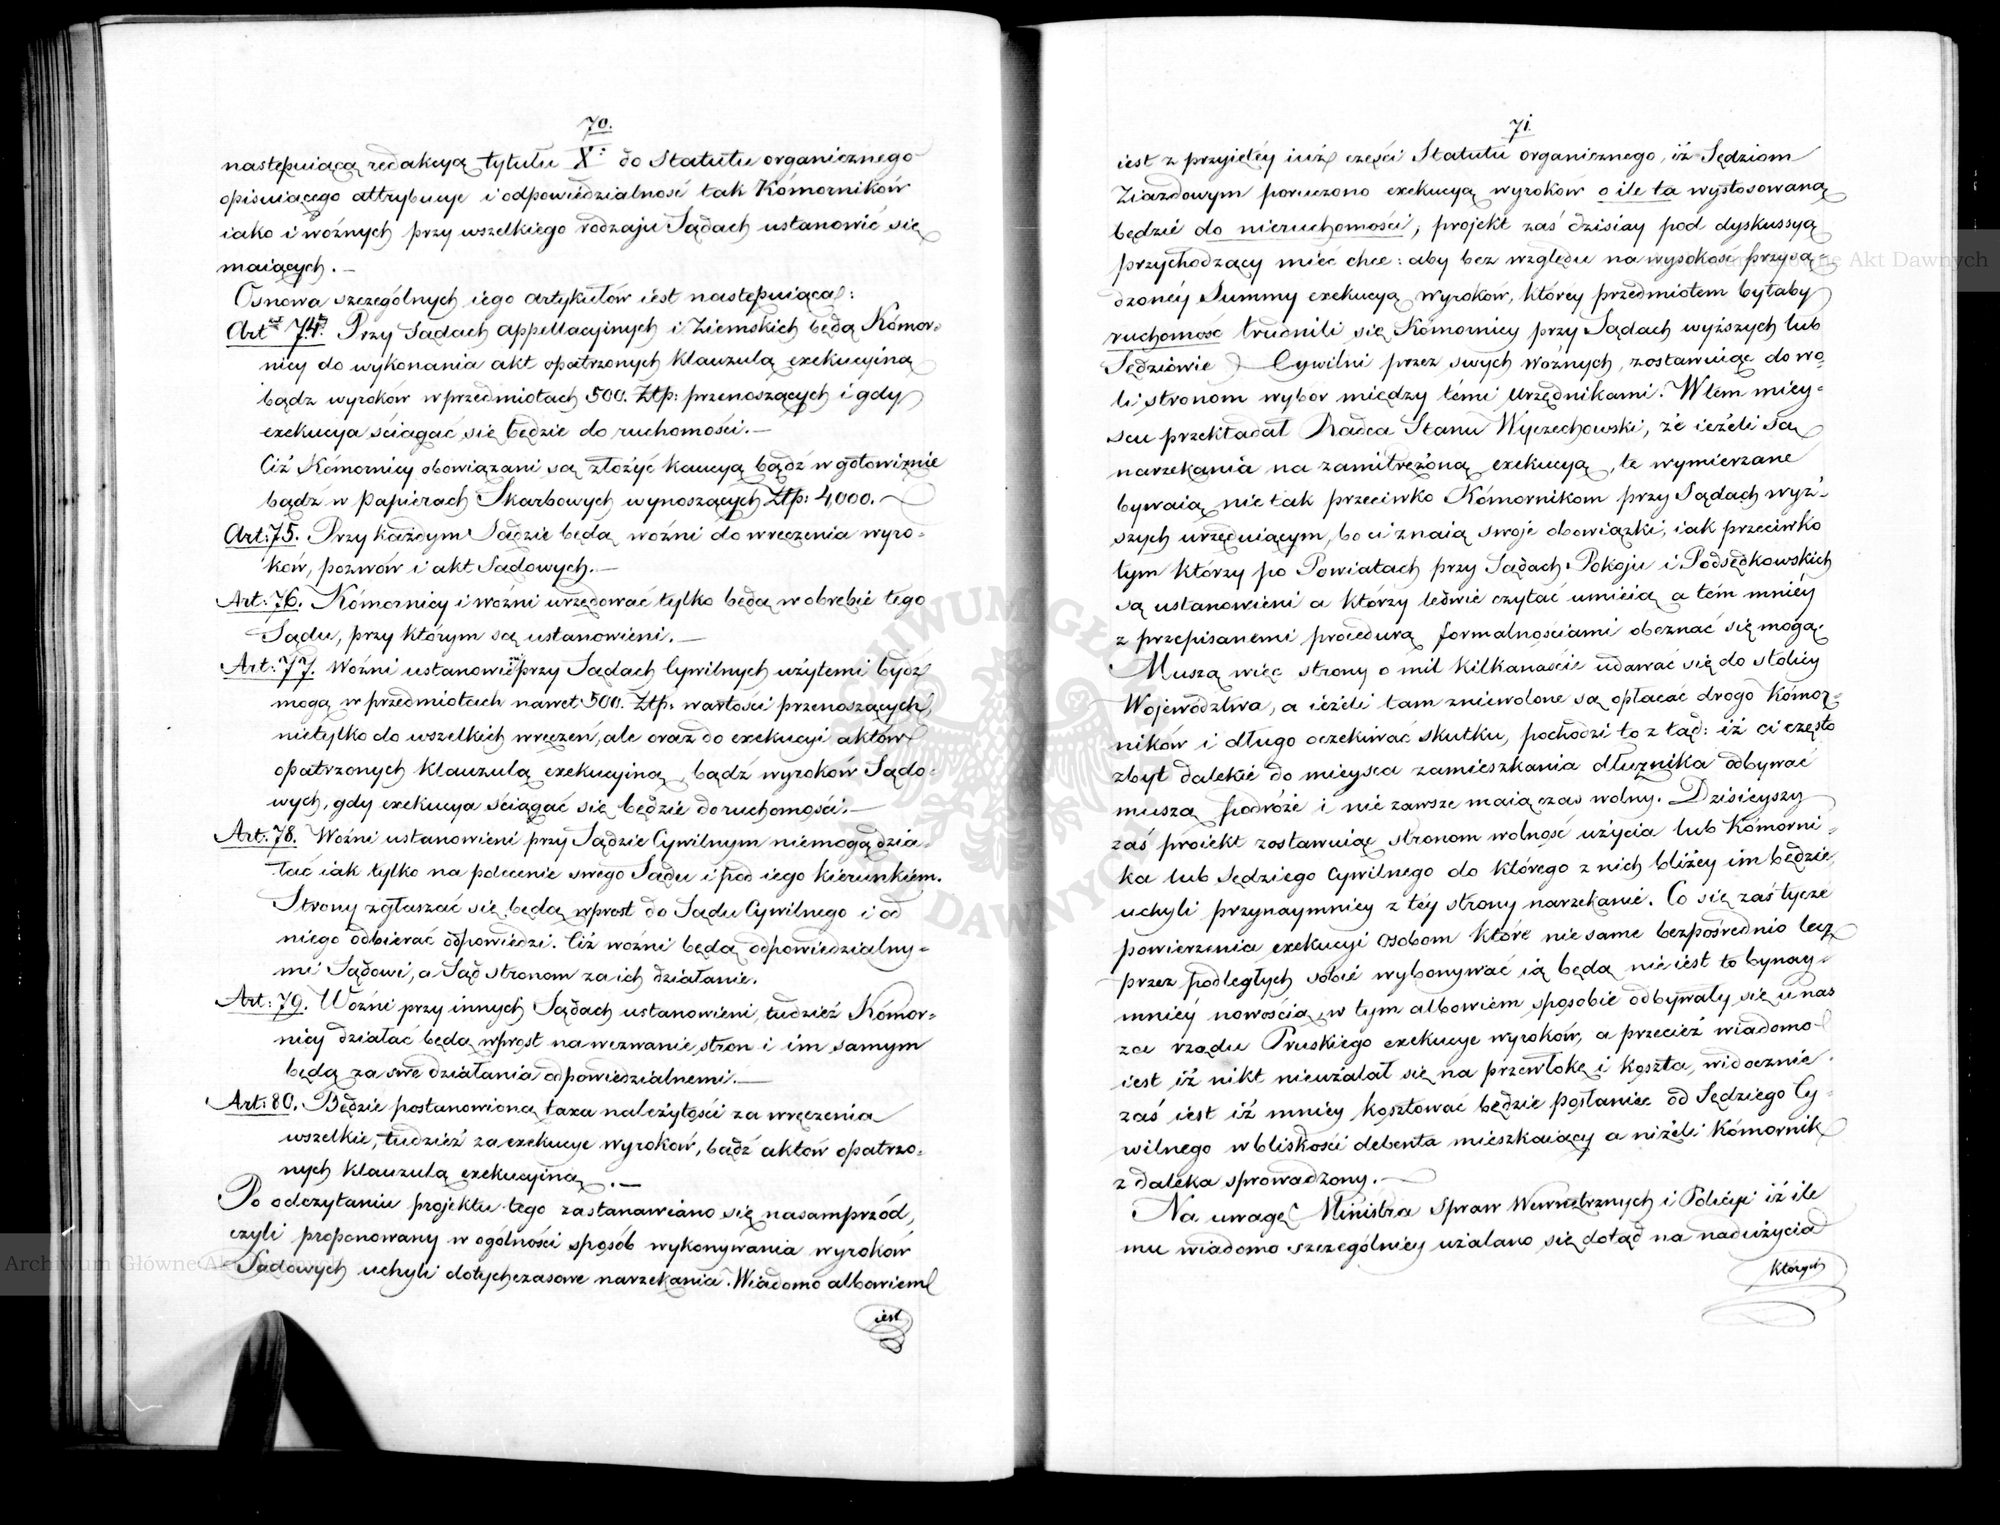 70.
następuiącą redakcyą tytułu X° do Statutu organicznego
opisuiącego attrybucye i odpowiedzialność tak Kómorników
iako i woźnych przy wszelkiego rodzaju Sądach ustanowić się
maiących. —
Osnowa szczególnych iego artykułów iest następuiąca:
Art. 74. Przy Sądach appellacyinych i Ziemskich będą Kómor=
nicy do wykonania akt opatrzonych klauzulą exekucyiną
bądz wyroków w przedmiotach 500. Złp: przenoszących i gdy
exekucya ściągać się będzie do ruchomości. —
Ciż Kómornicy obowiązani są złożyć kaucyą bądź w gotowiznie
bądź w papierach Skarbowych wynoszących Złp: 4,000. —
Art: 75. Przy każdym Sądzie będą woźni do wręczenia wyro=
ków, pozwów i akt Sądowych. —
Art: 76. Kómornicy i woźni urzędować tylko będą w obrębie tego
Sądu, przy którym są ustanowieni. —
Art: 77. Woźni ustanowieni przy Sądach Cywilnych użytemi bydź
mogą w przedmiotach nawet 500. Złp: wartości przenoszących,
nietylko do wszelkich wręczeń, ale oraz do exekucyi aktów
opatrzonych klauzulą exekucyiną, bądź wyroków Sądo=
wych, gdy exekucya ściągać się będzie do ruchomości. —
Art: 78. Woźni ustanowieni przy Sądzie Cywilnym niemogą dzia=
łać iak tylko na polecenie swego Sądu i pod iego kierunkiem.
Strony zgłaszać się będą wprost do Sądu Cywilnego i od
niego odbierać odpowiedzi. Ciż woźni będą odpowiedzialny=
mi Sądowi, a Sąd stronom za ich działanie.
Art: 79. Woźni przy innych Sądach ustanowieni, tudzież Kómor=
nicy działać będą wprost na wezwanie stron i im samym
będą za swe działania odpowiedzialnemi. —
Art: 80. Będzie postanowiona taxa należytości za wręczenia
wszelkie, tudzież za exekucye wyroków, bądź aktów opatrzo=
nych klauzulą exekucyiną. —
Po odczytaniu projektu tego zastanawiano się nasamprzód,
czyli proponowany w ogólności sposób wykonywania wyroków
Sądowych uchyli dotychczasowe narzekania. Wiadomo albowiem
iest
71.
iest z przyiętéy iuż części Statutu organicznego, iż Sędziom
Ziazdowym poruczono exekucyą wyroków o ile ta wystosowaną
będzie do nieruchomości, projekt zaś dzisiay pod dyskussyą
przychodzący mieć chce: aby bez względu na wysokość przysą=
dzonéy Summy exekucyą wyroków, któréy przedmiotem byłaby
ruchomość trudnili się Kómornicy przy Sądach wyższych lub
Sędziowie Cywilni przez swych woźnych, zostawuiąc do wo=
li stronom wybor między témi Urzędnikami. W tém miey=
scu przekładał Radca Stanu Wyczechowski, że ieżeli są
narzekania na zamitrężoną exekucyą, te wymierzane
bywaią nie tak przeciwko Kómornikom przy Sądach wyż=
szych urzęduiącym, bo ci znaią swoje obowiązki, iak przeciwko
tym którzy po Powiatach przy Sądach Pokoju i Podsędkowskich
są ustanowieni a którzy ledwie czytać umieią a tém mniéy
z przepisanemi procedurą formalnościami obeznać się mogą.
Muszą więc strony o mil kilkanaście udawać się do stolicy
Województwa, a ieżeli tam zniewolone są opłacać drogo Kómor=
ników i długo oczekiwać skutku, pochodzi to z tąd: iż ci często
zbyt dalekie do mieysca zamieszkania dłużnika odbywać
muszą podróże i nie zawsze maią czas wolny. Dzisieyszy
zaś proiekt zostawuiąc stronom wolność użycia lub Kómorni=
ka lub Sędziego Cywilnego do którego z nich bliżéy im będzie,
uchyli przynaymniéy z téy strony narzekanie. Co się zaś tycze
powierzenia exekucyi osobom które nie same bezpośrednio lecz
przez podległych sobie wykonywać ią będą nie iest to bynay=
mniéy nowością, w tym albowiem sposobie odbywały się u nas
za rządu Pruskiego exekucye wyroków, a przecież wiadomo
iest iż nikt nieużalał się na przewłokę i koszta, widocznie
zaś iest iż mniéy kosztować będzie posłaniec od Sędziego Cy=
wilnego w bliskości debenta mieszkaiący a niżeli Kómornik
z daleka sprowadzony. —
Na uwagę Ministra Spraw Wewnętrznych i Policyi iż ile
mu wiadomo szczególniéy użalano się dotąd na nadużycia
których